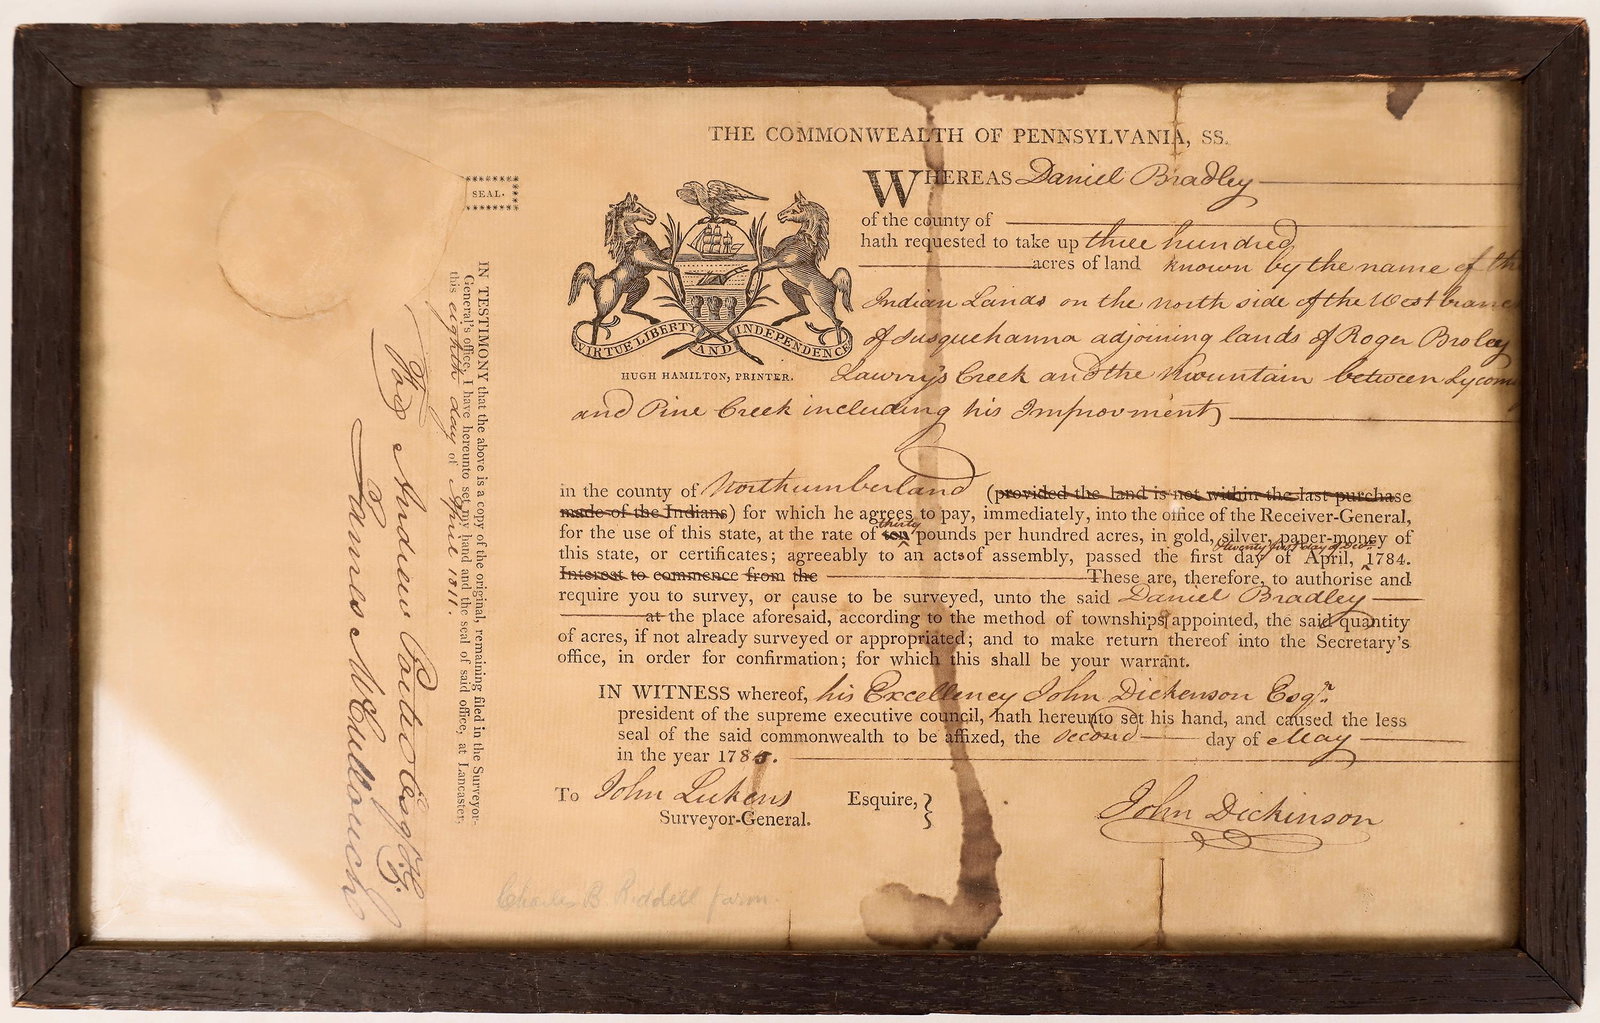 THE COMMONWEALTH OF PENNSYLVANIA, SS.
WHEREAS Daniel Bradley
of the county of
hath requested to take up three hundred
acres of land known by the name of th
Indian Lands on the north side of the West branc
of Susquehanna adjoining lands of Roger
Lawry's Creek and the Mountain between Lycom
and Pine Creek including his Improvment
VIRTUE LIBERTY AND INDEPENDENCE
HUGH HAMILTON, PRINTER.
in the county of Northumberland (provided the land is not within the last purchase
made of the Indians) for which he agrees to pay, immediately, into the office of the Receiver-General,
thirty
for the use of this state, at the rate of ten pounds per hundred acres, in gold, silver, paper-money of
& twenty first day of Decr.
this state, or certificates; agreeably to an acts of assembly, passed the first day of April, 1784.
Interest to commence from the These are, therefore, to authorise and
require you to survey, or cause to be surveyed, unto the said Daniel Bradley
at the place aforesaid, according to the method of townships appointed, the said quantity
of acres, if not already surveyed or appropriated; and to make return thereof into the Secretary's
office, in order for confirmation; for which this shall be your warrant.
IN WITNESS whereof, his Excellency John Dickenson Esqr.
president of the supreme executive council, hath hereunto set his hand, and caused the less
seal of the said commonwealth to be affixed, the second day of May
in the year 1785.
To John Lukens Esquire,
Surveyor-General.
John Dickinson
Charles B. Riddell farm.
SEAL.
IN TESTIMONY that the above is a copy of the original, remaining filed in the Surveyor-
General's office, I have hereunto set my hand and the seal of said office, at Lancaster,
this eighth day of April 1811.
For Andrew Porter Esqre S.G.
James McCullouch